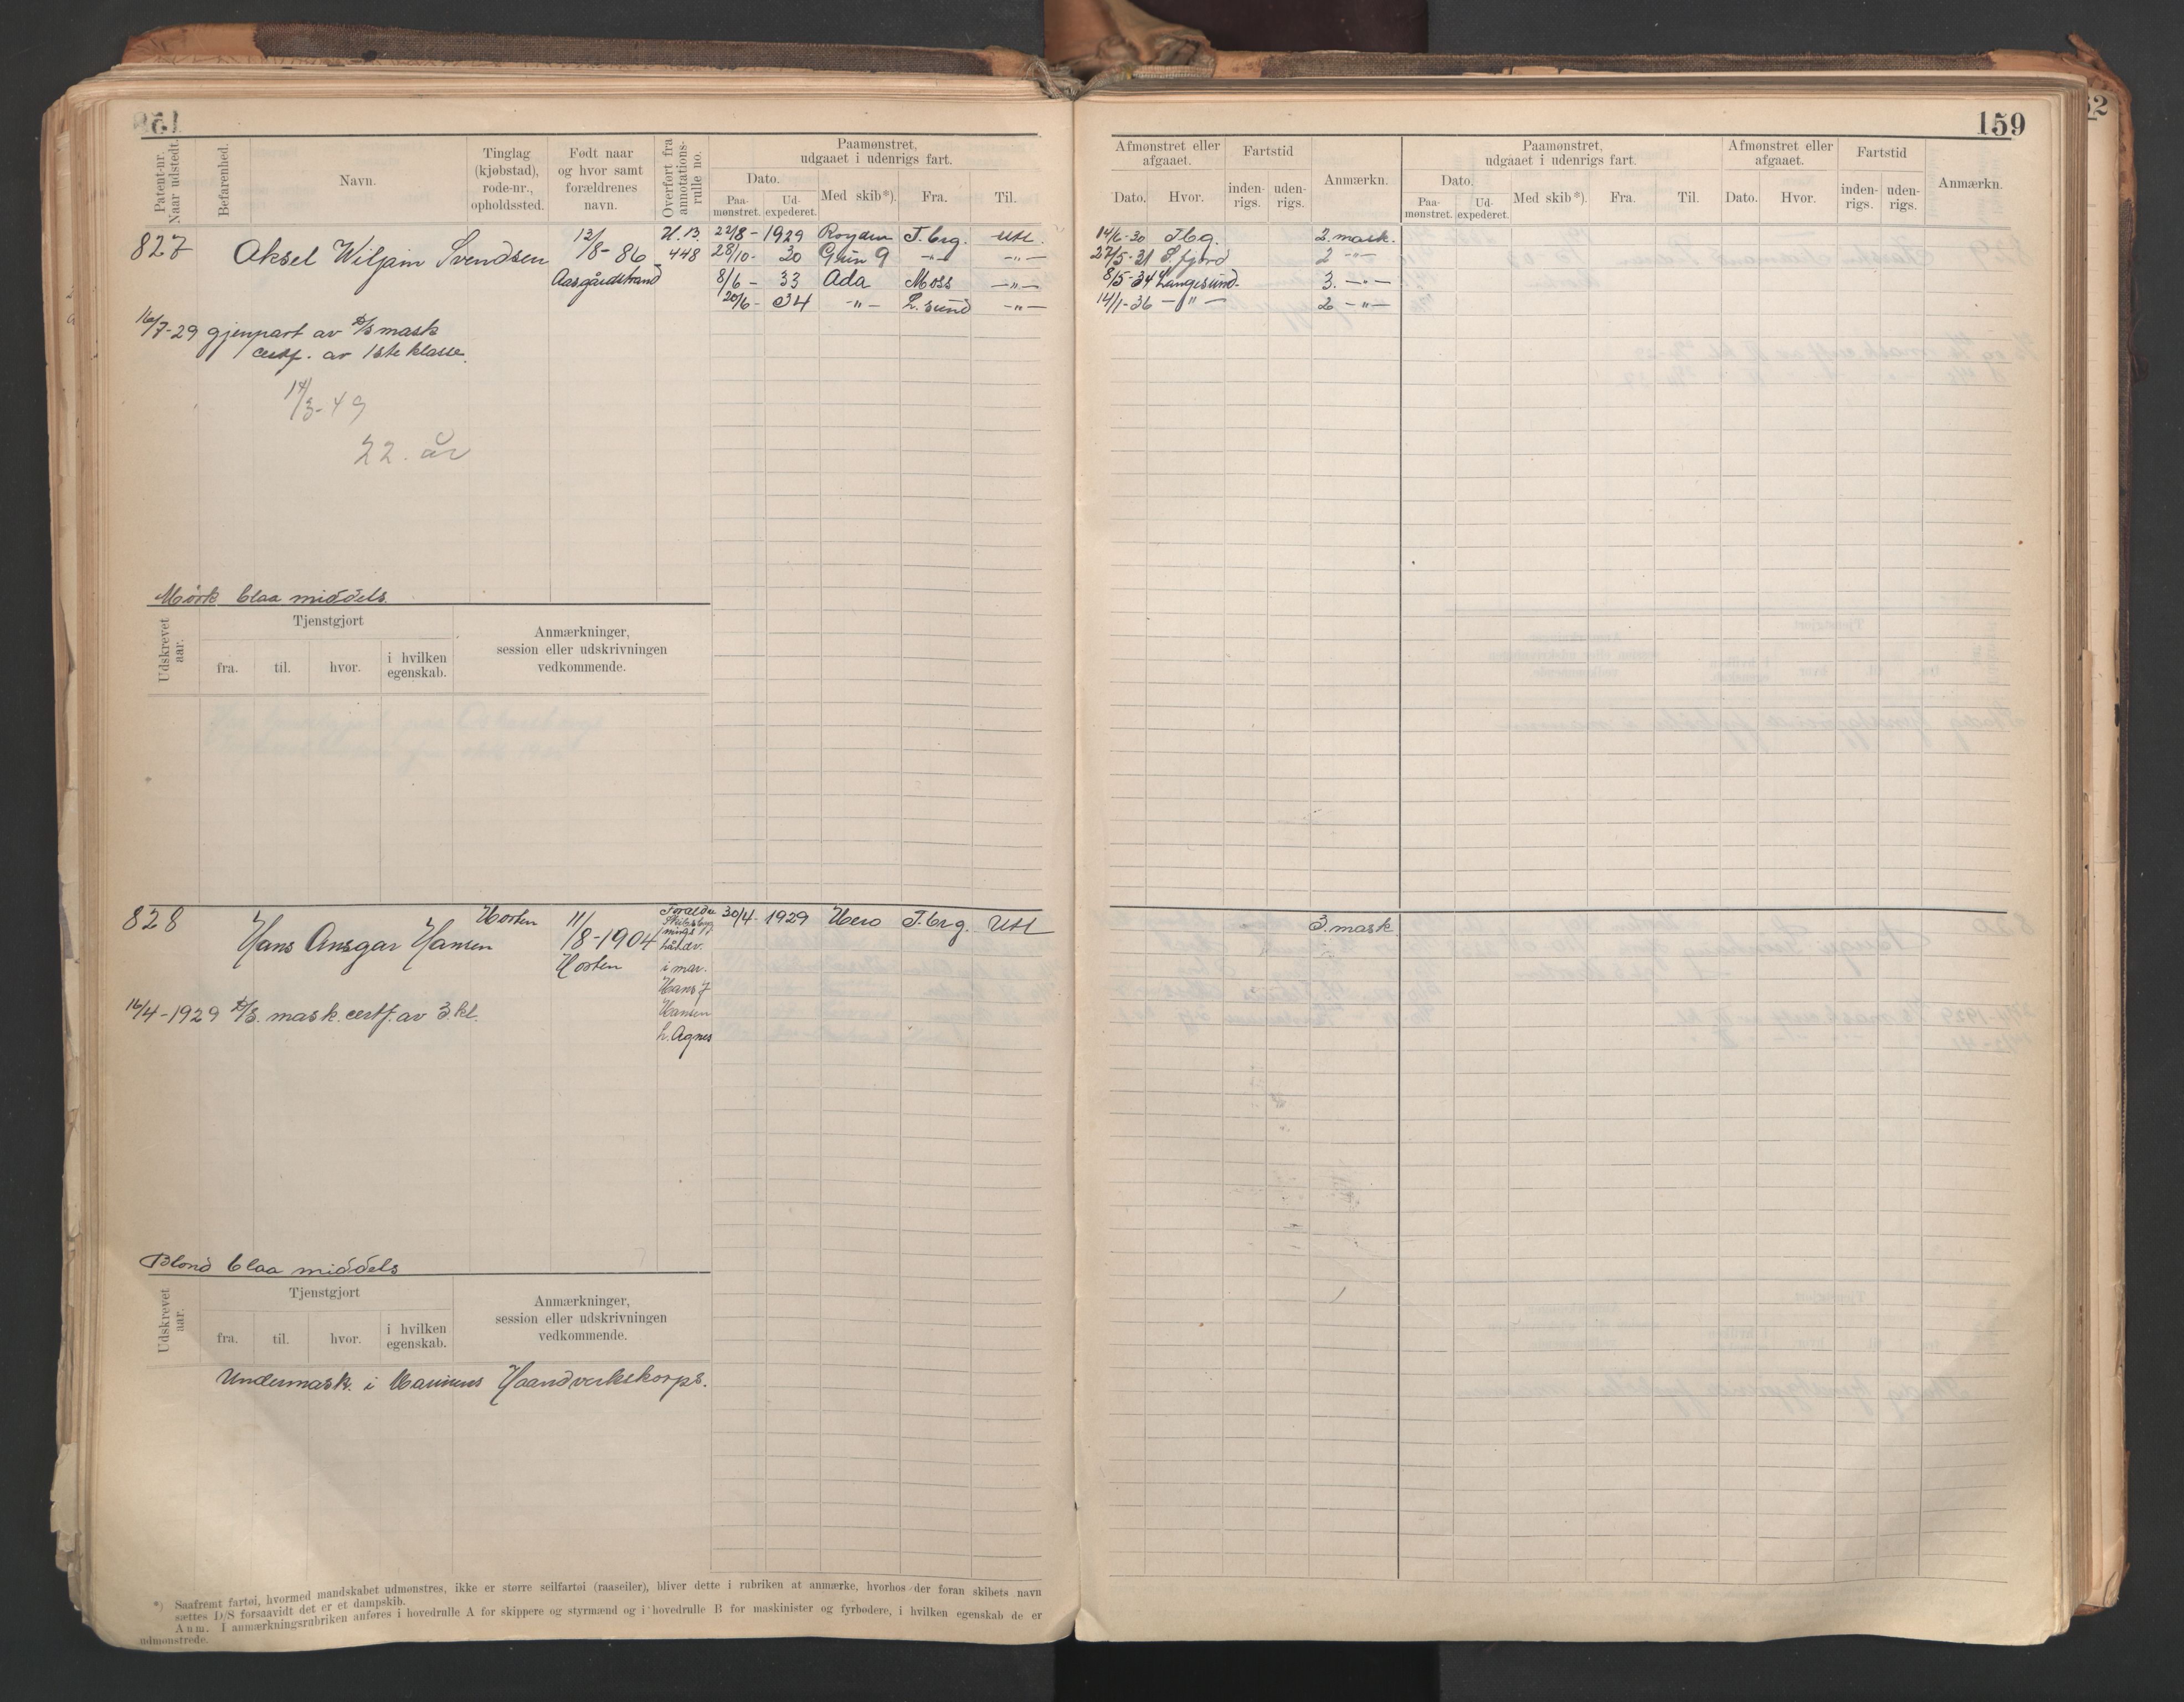 159
Patent-nr.
Naar udstedt.
Befarenhed.
Navn.
Tinglag
(kjøbstad),
rode-nr.,
opholdssted.
Født naar
og hvor samt
forældrenes
navn.
Overført fra
annotations-
rulle no.
Paamønstret,
udgaaet i udenrigs fart.
Dato.
Paa-
mønstret.
Ud-
expederet.
Med skib*).
Fra.
Til.
Afmønstret eller
afgaaet.
Dato.
Hvor.
Fartstid
inden-
rigs.
uden-
rigs.
Anmærkn.
Paamønstret,
udgaaet i udenrigs fart.
Dato.
Paa-
mønstret.
Ud-
expederet.
Med skib*).
Fra.
Til.
Afmønstret eller
afgaaet.
Dato.
Hvor.
Fartstid
inden-
rigs.
uden-
rigs.
Anmærkn.
827
Aksel Wiljam Svendsen
13/8-86
Aasgårdstrand
H.B.
448
22/8 - 1929 T.brg. Utl.
28/10- 30 -"- -"-
8/6 - 33 Ada Moss -"-
20/6- 34 -"- L.sund -"-
14/6-30 Tbg. 2. mask.
27/5-31 S.fjord 2 -"-
8/5-34 Langesund. 3. -"-
14/1-36 -"- 2 -"-
16/7-29 gjenpart av D/S mask
certf. av 1ste klasse.
14/3-49
22. år
Mørk blaa middels.
Udskrevet
aar.
Tjenstgjort
fra.
til.
hvor.
i hvilken
egenskab.
Anmærkninger,
session eller udskrivningen
vedkommende.
828
Hans Ansgar Hansen
Horten
11/8-1904
Horten
i mar.
Hans J
Hansen
h. Agnes
30/4- 1929 Hero T.brg. Utl
3. mask.
16/4-1929 D/S. mask. certf. av 3 kl.
Blond blaa middels
Udskrevet
aar.
Tjenstgjort
fra.
til.
hvor.
i hvilken
egenskab.
Anmærkninger,
session eller udskrivningen
vedkommende.
Undermask. i Marinens Haandverkskorps.
*) Saafremt fartøi, hvormed mandskabet udmønstres, ikke er større seilfartøi (raaseiler), bliver dette i rubriken at anmærke, hvorhos der foran skibets navn
sættes D/S forsaavidt det er et dampskib.
Anm. I anmærkningsrubriken anføres i hovedrulle A for skippere og styrmænd og i hovedrulle B for maskinister og fyrbødere, i hvilken egenskab de er
udmønstrede.